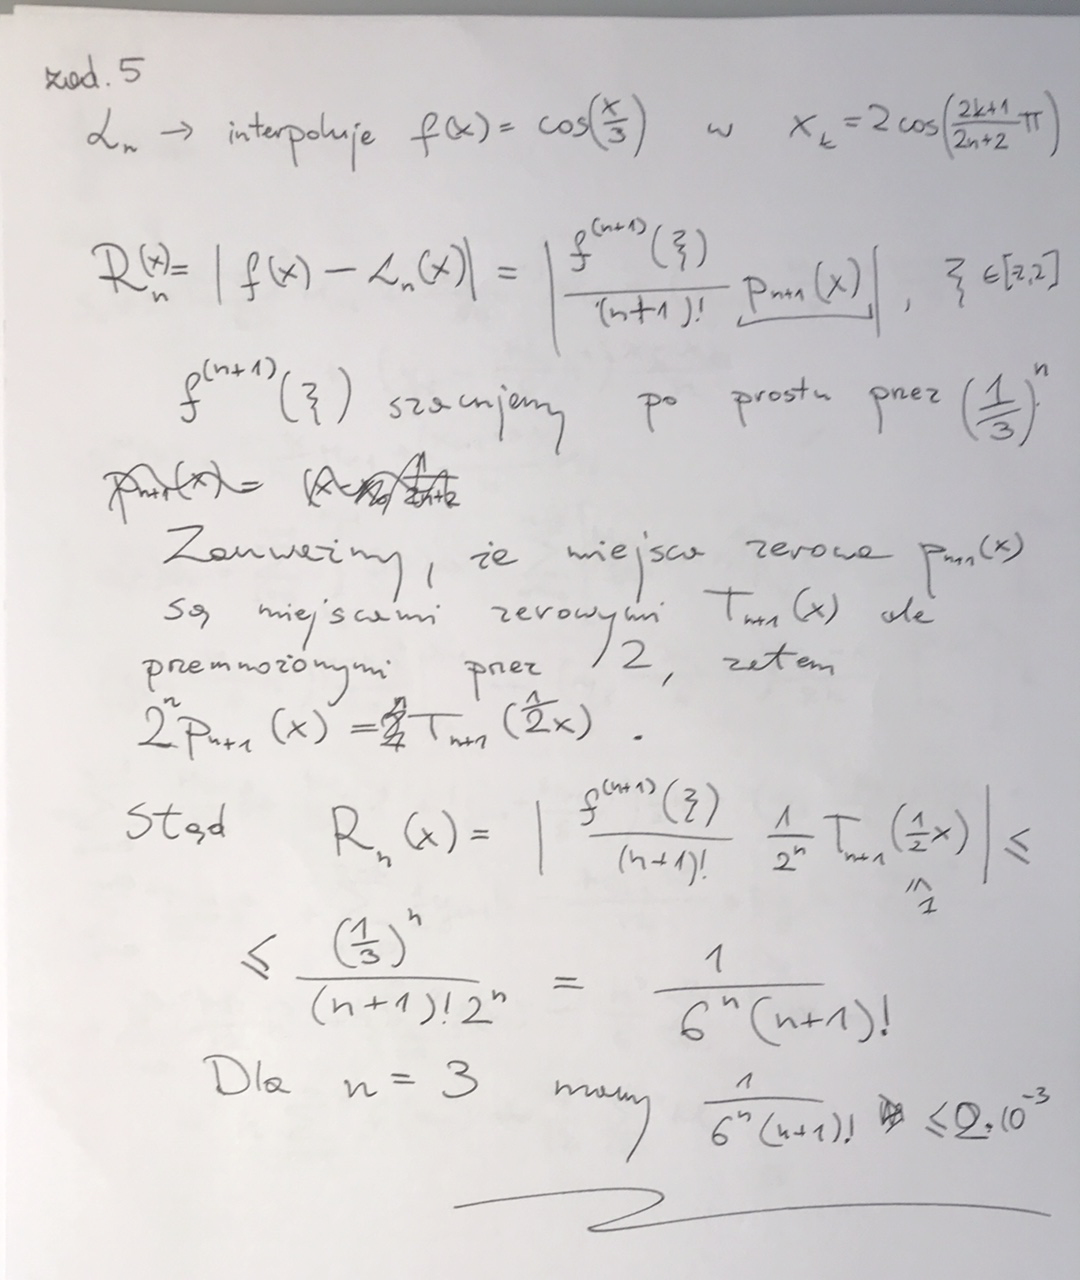 zad. 5
L_n → interpoluje f(x) = cos(x/3) w x_k = 2cos((2k+1)/(2n+2) π)
R_n(x) = | f(x) - L_n(x) | = | f^(n+1)(ξ) / (n+1)! p_{n+1}(x) | , ξ ∈ [-2,2]
f^(n+1)(ξ) szacujemy po prostu przez (1/3)^n
Zauważmy, że miejsca zerowe p_{n+1}(x)
są miejscami zerowymi T_{n+1}(x) ale
przemnożonymi przez 2, zatem
2^n p_{n+1}(x) = T_{n+1}(1/2 x) .
Stąd R_n(x) = | f^(n+1)(ξ) / (n+1)! 1/2^n T_{n+1}(1/2 x) | ≤
≤ 1
≤ (1/3)^n / ((n+1)! 2^n) = 1 / (6^n (n+1)!)
Dla n = 3 mamy 1 / (6^n (n+1)!) ≤ 2·10^-3